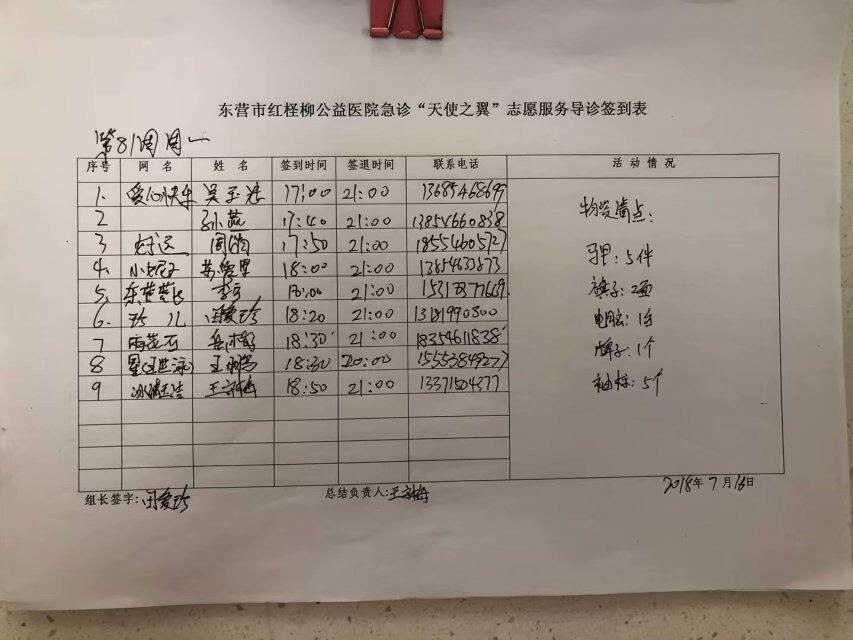 东营市红柽柳公益医院急诊“天使之翼”志愿服务导诊签到表
第81周周一
序号 网名 姓名 签到时间 签退时间 联系电话 活动情况
1. 爱心快乐 17:00 21:00 13685468699
2 孙燕 17:40 21:00 13854660838
3 好运 17:50 21:00 18554605727
4. 小妮子 18:00 21:00 13854633873
5. 18:00 21:00
6. 珍儿 闫爱珍 18:20 21:00 13181990300
7 雨花石 18:30 21:00 18354611838
8 18:30 20:00 15553849277
9 冰清玉洁 18:50 21:00 13371504377
物资清点:
马甲:5件
旗子:2面
电脑:1台
牌子:1个
袖标:5个
组长签字:闫爱珍 总结负责人: 2018年7月16日